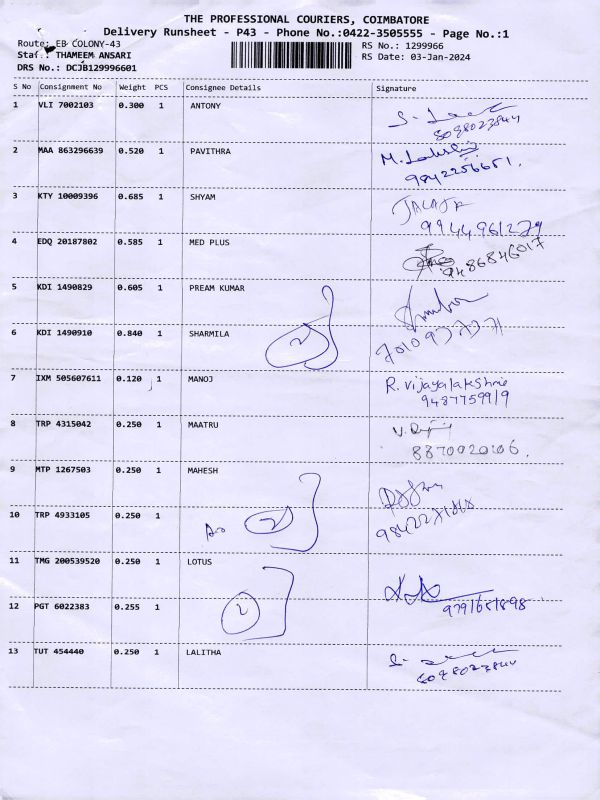 THE PROFESSIONAL COURIERS, COIMBATORE
Delivery Runsheet - P43 - Phone No.:0422-3505555 - Page No.:1
Route: EB COLONY-43 RS No.: 1299966
Staf : THAMEEM ANSARI RS Date: 03-Jan-2024
DRS No.: DCJB129996601
S No Consignment No Weight PCS Consignee Details Signature
1 VLI 7002103 0.300 1 ANTONY
2 MAA 863296639 0.520 1 PAVITHRA
9842256651.
3 KTY 10009396 0.685 1 SHYAM
9944961279
4 EDQ 20187802 0.585 1 MED PLUS
9486846017
5 KDI 1490829 0.605 1 PREAM KUMAR
6 KDI 1490910 0.840 1 SHARMILA
2
7 IXM 505607611 0.120 1 MANOJ R. Vijayalakshmi
9487759919
8 TRP 4315042 0.250 1 MAATRU
8870020106.
9 MTP 1267503 0.250 1 MAHESH
10 TRP 4933105 0.250 1
2
11 TMG 200539520 0.250 1 LOTUS
12 PGT 6022383 0.255 1
2 9791651898
13 TUT 454440 0.250 1 LALITHA